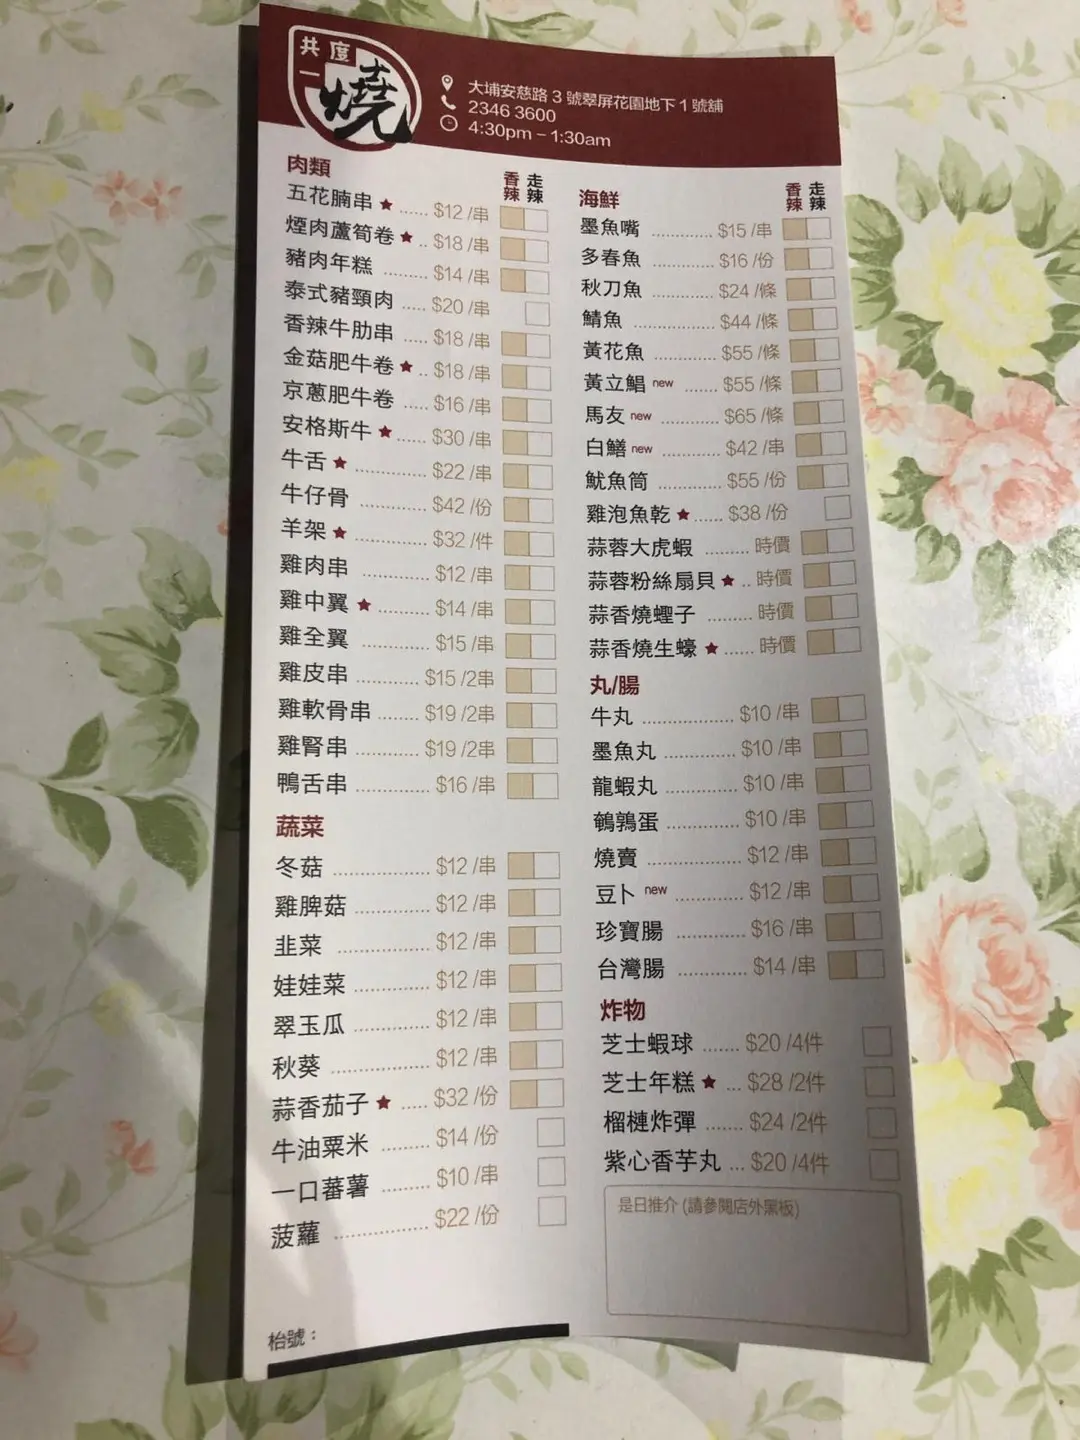 共度一燒
大埔安慈路 3 號翠屏花園地下 1 號舖
2346 3600
4:30pm – 1:30am
肉類 香辣 走辣
五花腩串 ★ ...... $12 /串
煙肉蘆筍卷 ★ .. $18 /串
豬肉年糕 ......... $14 /串
泰式豬頸肉 ..... $20 /串
香辣牛肋串 ...... $18 /串
金菇肥牛卷 ★ .. $18 /串
京蔥肥牛卷 ..... $16 /串
安格斯牛 ★ ...... $30 /串
牛舌 ★ ............... $22 /串
牛仔骨 ............... $42 /份
羊架 ★ ................ $32 /件
雞肉串 .............. $12 /串
雞中翼 ★ ........... $14 /串
雞全翼 ............... $15 /串
雞皮串 .............. $15 /2串
雞軟骨串 ........ $19 /2串
雞腎串 .............. $19 /2串
鴨舌串 ............... $16 /串
蔬菜
冬菇 .................... $12 /串
雞脾菇 ................ $12 /串
韭菜 ................... $12 /串
娃娃菜 ................ $12 /串
翠玉瓜 ................ $12 /串
秋葵 .................... $12 /串
蒜香茄子 ★ ..... $32 /份
牛油粟米 ........... $14 /份
一口蕃薯 ......... $10 /串
菠蘿 .................... $22 /份
枱號：
海鮮 香辣 走辣
墨魚嘴 .............. $15 /串
多春魚 .............. $16 /份
秋刀魚 .............. $24 /條
鯖魚 .................. $44 /條
黃花魚 .............. $55 /條
黃立鯧 new ....... $55 /條
馬友 new ............ $65 /條
白鱔 new ............. $42 /串
魷魚筒 .............. $55 /份
雞泡魚乾 ★ ...... $38 /份
蒜蓉大虎蝦 ......... 時價
蒜蓉粉絲扇貝 ★ .. 時價
蒜香燒蟶子 ......... 時價
蒜香燒生蠔 ★ ...... 時價
丸/腸
牛丸 ................... $10 /串
墨魚丸 ............... $10 /串
龍蝦丸 ............... $10 /串
鵪鶉蛋 ............... $10 /串
燒賣 ................... $12 /串
豆卜 new .............. $12 /串
珍寶腸 .............. $16 /串
台灣腸 .............. $14 /串
炸物
芝士蝦球 ....... $20 /4件
芝士年糕 ★ ... $28 /2件
榴槤炸彈 ....... $24 /2件
紫心香芋丸 ... $20 /4件
是日推介 (請參閱店外黑板)